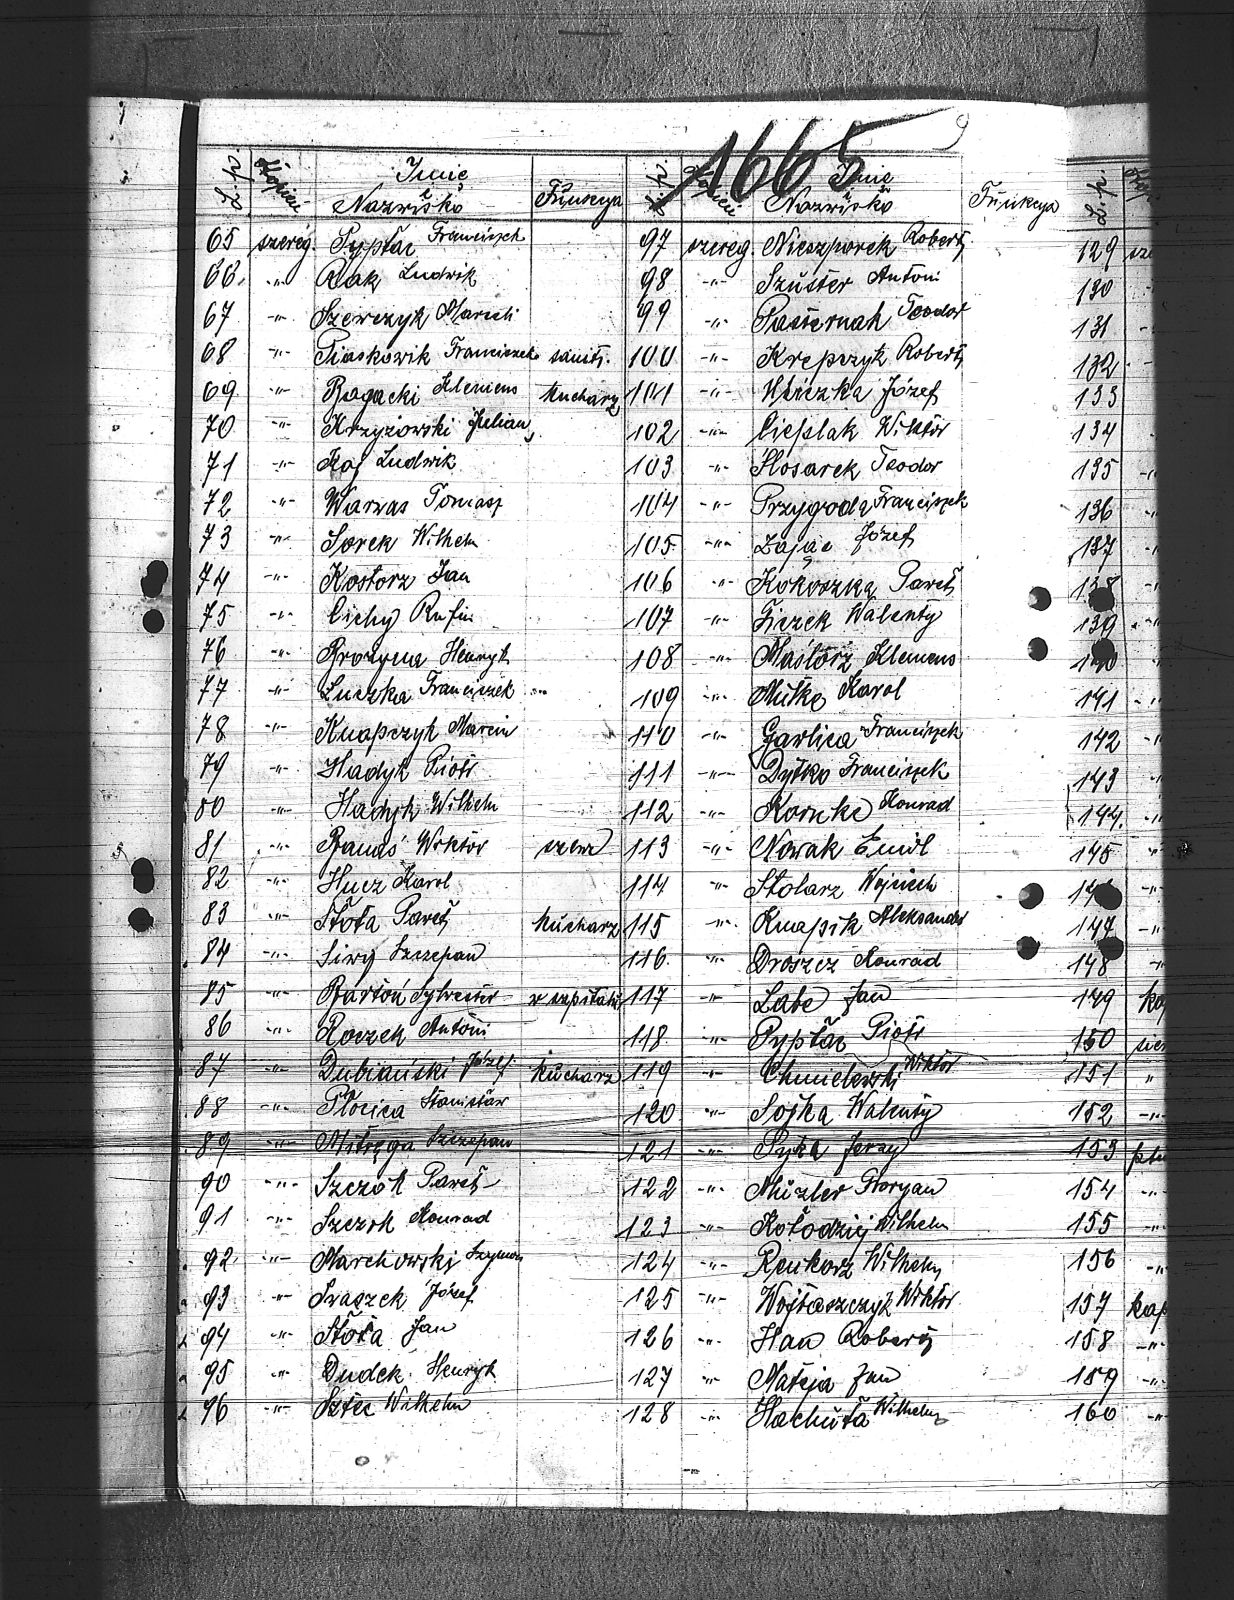 1665
L.p. Stopień Imię i Nazwisko Funkcya
65 szereg. Pyptac Franciszek
66. -"- Rak Ludwik
67 -"- Szewczyk Marceli
68 -"- Piaskowik Franciszek sanit.
69 -"- Bogacki Klemens kucharz
70 -"- Krzyżowski Julian
71 -"- Ludwik
72 -"- Warwas Tomasz
73 -"- Sorek Wilhelm
74 -"- Kostorz Jan
75 -"- Cichy Rufin
76 -"- Brozyna Henryk
77 -"- Luczka Franciszek
78 -"- Knapczyk Marcin
79 -"- Hadyk Piotr
80 -"- Hadyk Wilhelm
81 -"- Banaś Wiktor szewc
82 -"- Hucz Karol
83 -"- Stoła Paweł kucharz
84 -"- Siwy Szczepan
85 -"- Bartoń Sylwester w szpitalu
86 -"- Roczek Antoni
87 -"- Dubiański Józef kucharz
88 -"- Płocica Stanisław
89 -"- Mitręga Szczepan
90 -"- Szczok Paweł
91 -"- Szczok Konrad
92 -"- Marchowski Szymon
93 -"- Praszek Józef
94 -"- Stoła Jan
95 -"- Dudek Henryk
96 -"- Wilhelm
L.p. Stopień Imię i Nazwisko Funkcya
97 szereg. Nieszporek Robert
98 -"- Szuster Antoni
99 -"- Pasternak Teodor
100 -"- Krepczyk Robert
101 -"- Józef
102 -"- Cieplak Wiktor
103 -"- Slosarek Teodor
104 -"- Przygoda Franciszek
105 -"- Zając Józef
106 -"- Kokoszka Paweł
107 -"- Ficzek Walenty
108 -"- Mastorz Klemens
109 -"- Mitko Karol
110 -"- Garlica Franciszek
111 -"- Dytko Franciszek
112 -"- Kornke Konrad
113 -"- Nowak Emil
114 -"- Stolarz Wojciech
115 -"- Knapik Aleksander
116 -"- Droszcz Konrad
117 -"- Labe Jan
118 -"- Pyptac Piotr
119 -"- Chmielewski Wiktor
120 -"- Sojka Walenty
121 -"- Syka Jerzy
122 -"- Mizler Floryan
123 -"- Kołodziej Wilhelm
124 -"- Renkorz Wilhelm
125 -"- Wojtaszczyk Wiktor
126 -"- Han Robert
127 -"- Mateja Jan
128 -"- Hachuła Wilhelm
L.p.
129
130
131
132
133
134
135
136
137
138
139
140
141
142
143
144.
145
146
147
148
149
150
151
152
153
154
155
156
157
158
159
160